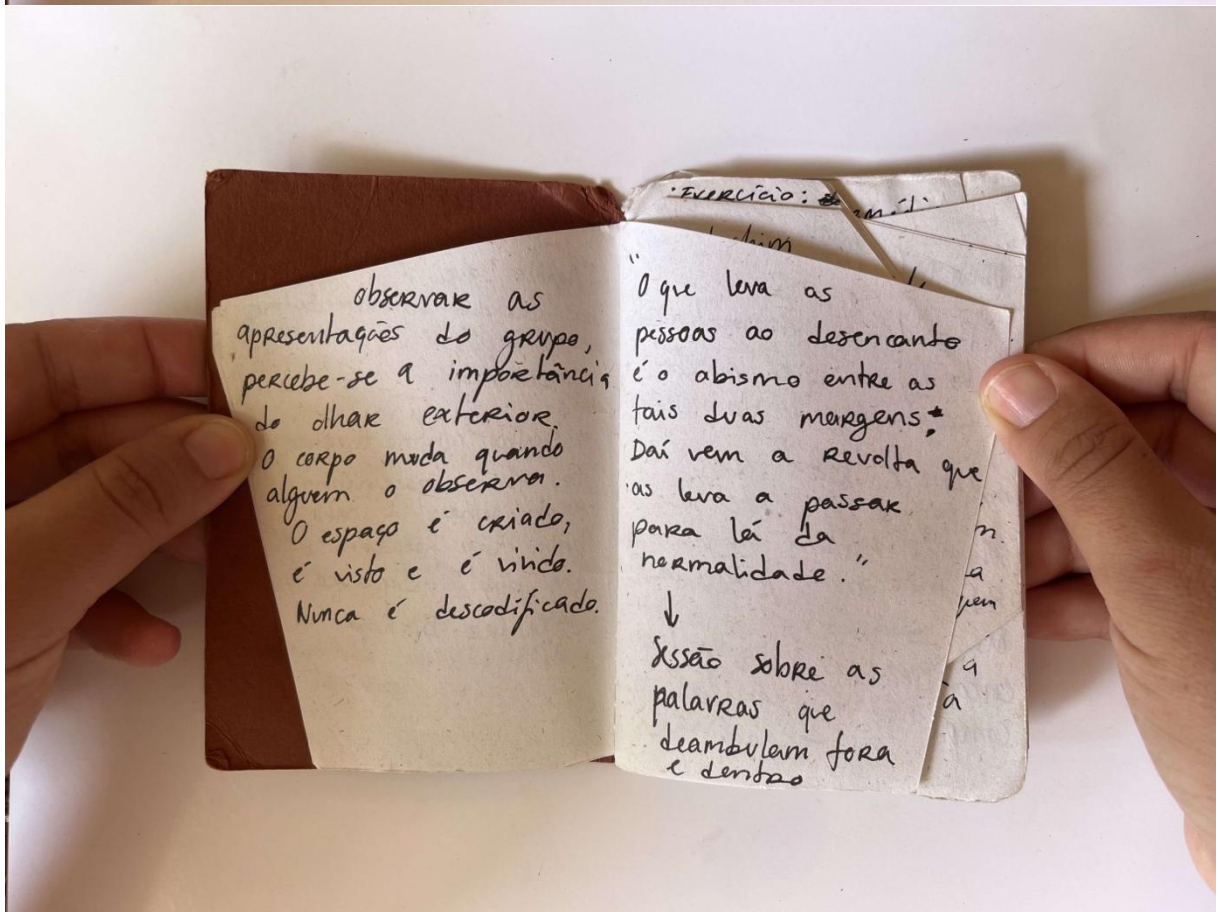 observar as
apresentações do grupo,
percebe-se a importância
do olhar exterior.
O corpo muda quando
alguem o observa.
O espaço é criado,
é visto e é vivido.
Nunca é descodificado.
"O que leva as
pessoas ao desencanto
é o abismo entre as
tais duas margens.
Daí vem a revolta que
as leva a passar
para lá da
normalidade."
↓
Sessão sobre as
palavras que
deambulam fora
e dentro
·Exercício: